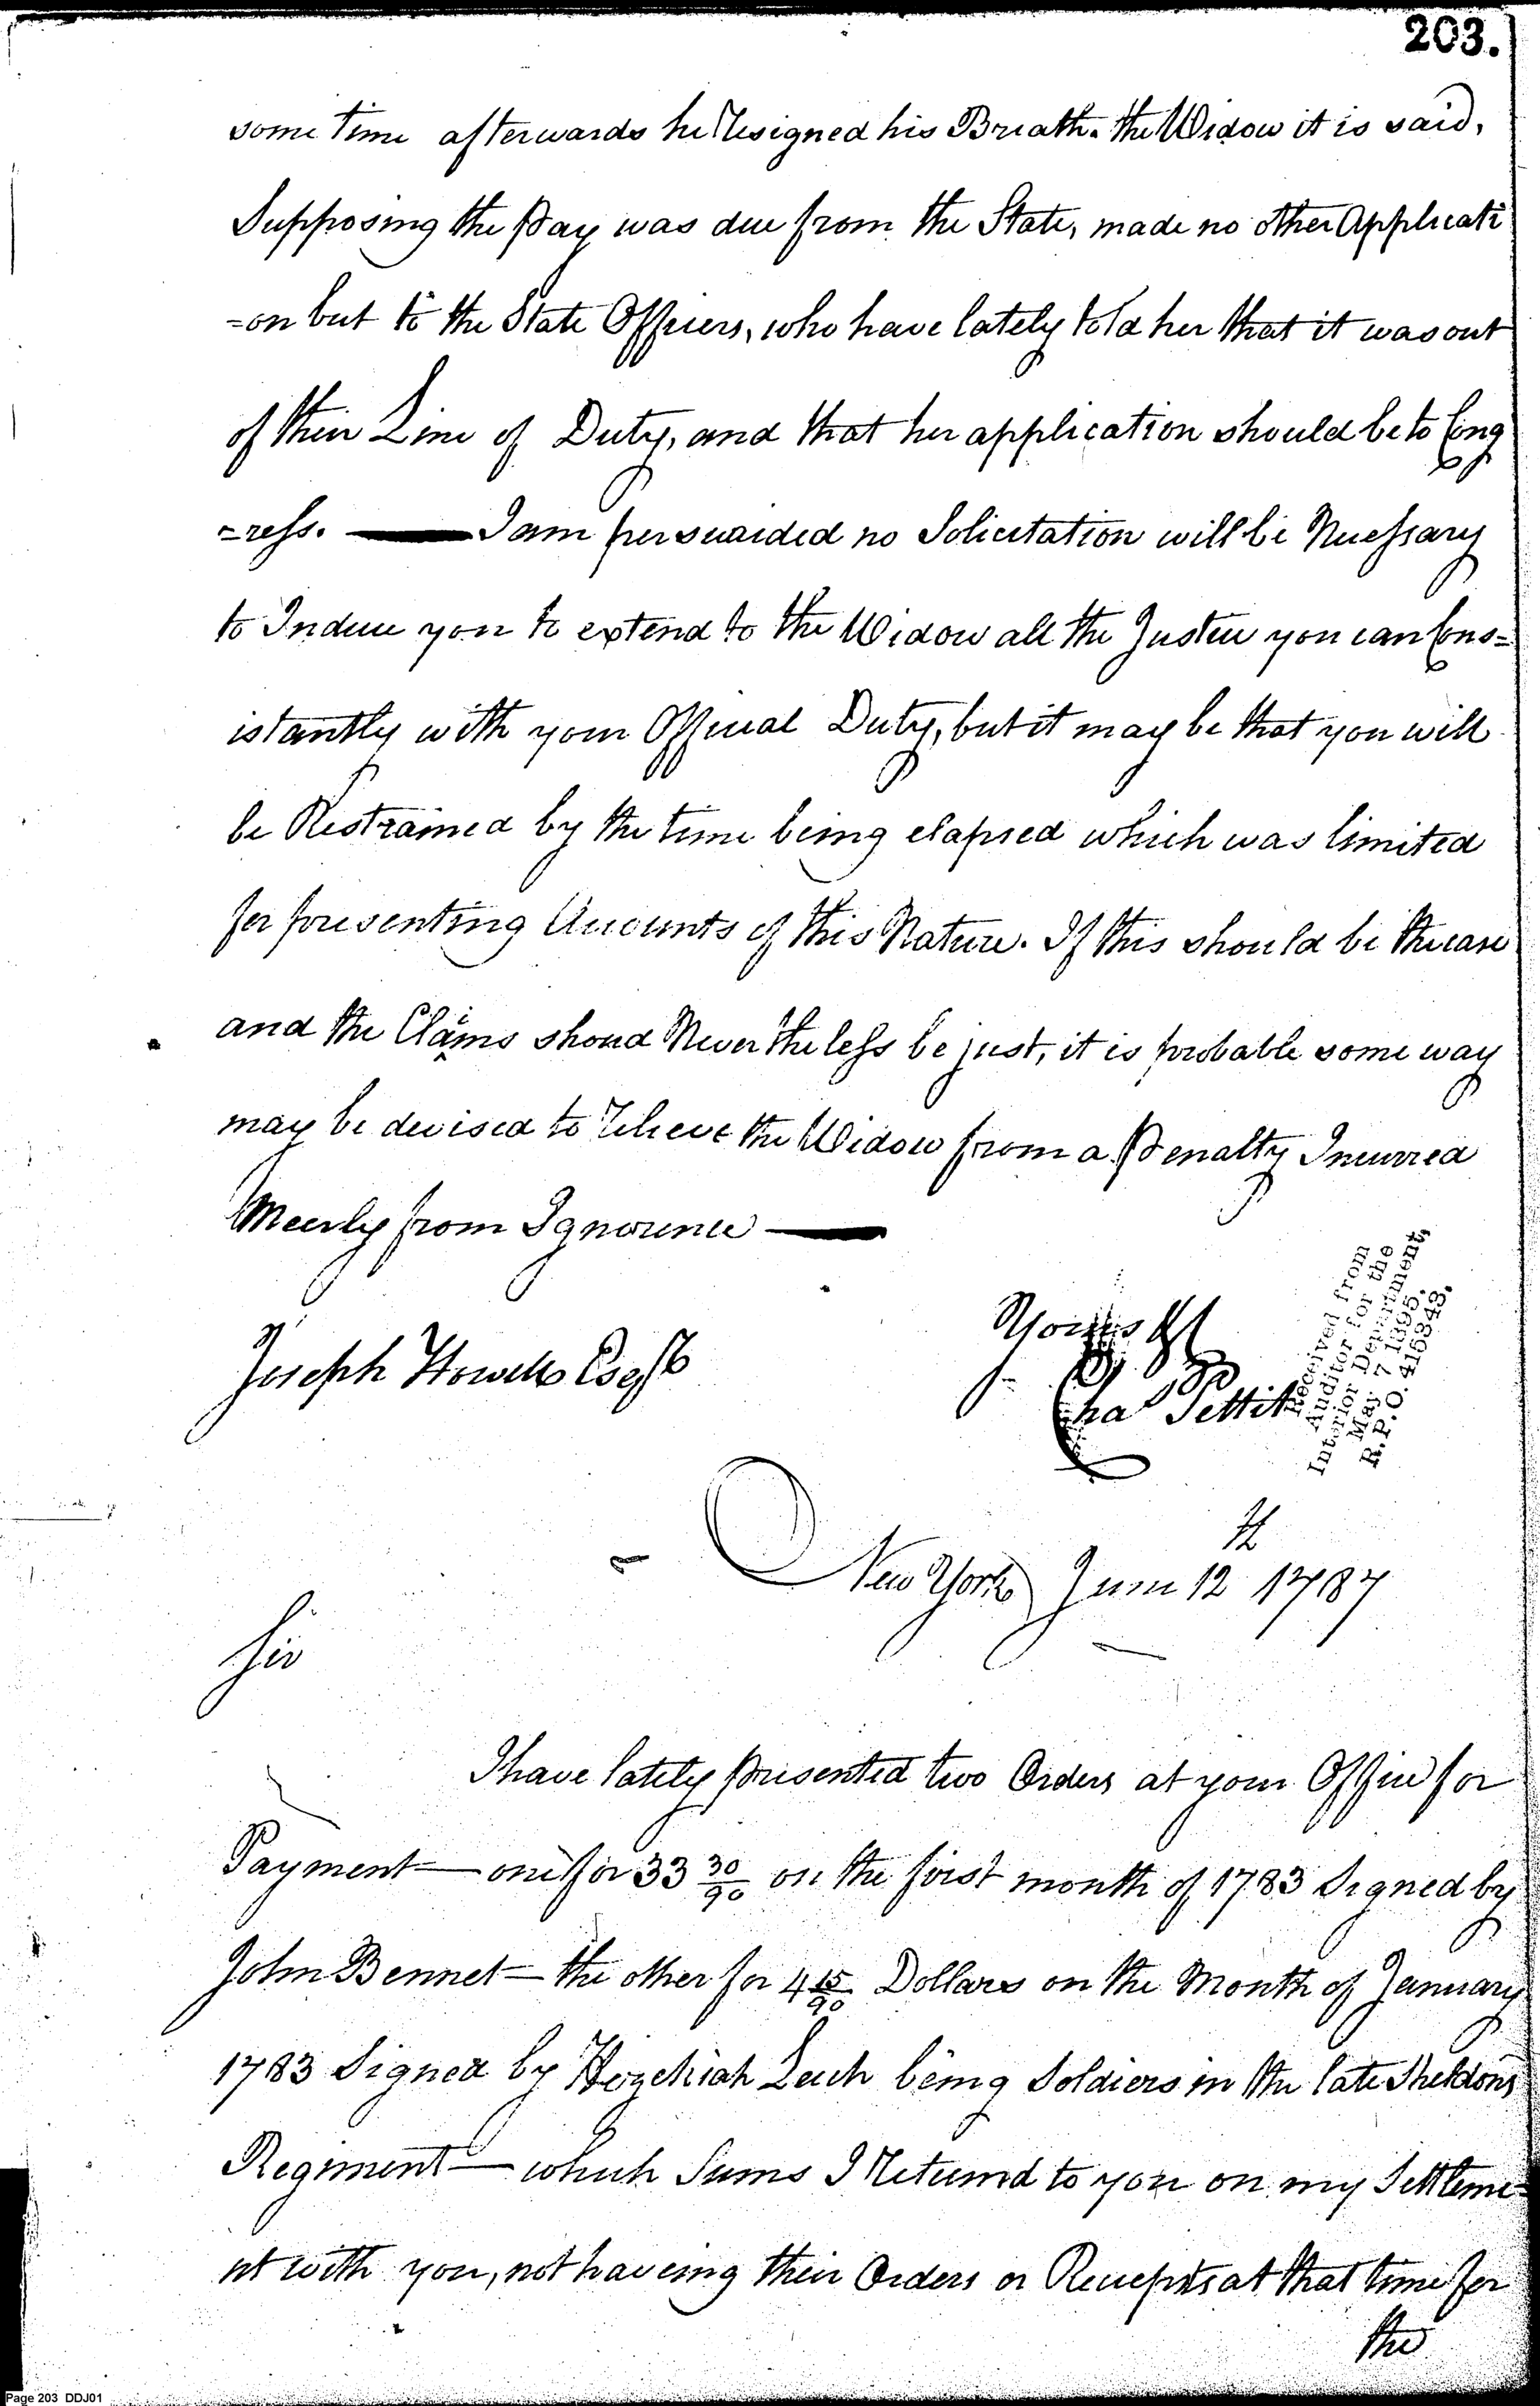 203.
some time afterwards he Resigned his Breath. the Widow it is said,
Supposing the Pay was due from the State, made no other Applicati
=on but to the State Officers, who have lately told her that it was out
of their Line of Duty, and that her application should be to Cong
=ress. — I am perswaided no Solicitation will be Necessary
to Induce you to extend to the Widow all the Justice you can Cons=
istantly with your Official Duty, but it may be that you will
be Restrained by the time being elapsed which was limited
for presenting Accounts of this Nature. If this should be the case
and the Claims shoud Nevertheless be just, it is probable some way
may be devised to Relieve the Widow from a Penalty Incurred
Meerly from Ignorence —
Yours &c
Joseph Howell Esqr
Chas Pettit
Received from
Auditor for the
Interior Department,
May 7 1895.
R.P.O. 415343.
New York June 12th 1787
Sir
I have lately presented two Orders at your Office for
Payment — one for 33 30/90 on the first month of 1783 Signed by
John Bennet — the other for 4 15/90 Dollars on the Month of January
1783 Signed by Hezekiah Leach being Soldiers in the late Sheldons
Regiment — which Sums I Returnd to you on my Settleme=
nt with you, not haveing their Orders or Receipts at that time for
the
Page 203 DDJ01